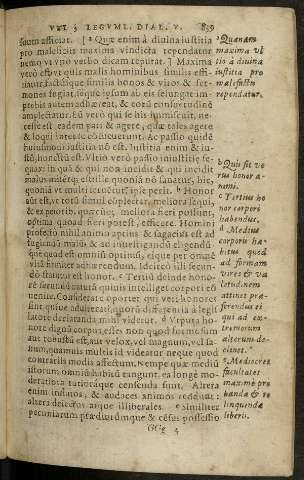 VEL 3 LEGVM. DIAL. V. 839
suum afficiat. [ a Quæ enim à diuina iustitia
pro maleficiis maxima vindicta rependatur
nemo vt vno verbo dicam reputat. ] Maxima
verò est vt quis malis hominibus similis effi-
ciatur, factúsque similis bonos & viros & ser-
mones fugiat, séque ipsum ab eis disiungat: im-
probis autem adhæreat, & eorū consuetudinē
amplectatur. Eū verò qui se his
cesse est eadem pati & agere, quæ tales agere
& loqui inter se
huiusmodi iustitia nō est. Iustitia enim & iu-
stū, honestū est. Vltio verò passio iniustitiæ se-
quax: in qua & qui non incidit & qui incidit
quonià nō sanatur, hic,
quoniā vt multi seruentur, ipse perit. b Honor
aūt est, vt totū simul cōplectar, meliora sequi,
& ex peiorib. quæcūq; meliora fieri possunt,
optima quoad fieri potest, efficere. Homini
profecto nihil animo aptius & sagacius est ad
fugiēdū malū, & ad intelligendū eligendū-
que quod est omniū optimū, eique per omnē
vitā
do statuit est honor. c Tertiū deinde hono-
ré secundū naturā quiuis intelliget corpori cō-
uenire. Considerare oportet qui veri honores
sint quíue adulterati, quorū differentiā à legis
latore declaranda mihi videtur. d Vtputa ho-
nore dignū corpus, esse non quod formosum
aut robustū est, aut velox, vel magnum, vel sa-
num, quamuis multis id videatur neque quod
contrariis modis affectum. Nempe quæ mediū
istorum omniū habitū tangunt, ea longè mo-
deratiora tutioráque censenda sunt. Altera
enim instatos, & audaces animos reddunt:
altera deiectos atque illiberales. e Similiter
pecuniarum prædiorúmque & cēsus possessio
GGg 4
a Quænam
maxima vl
tio à diuina
iustitia pro
malefactis
rependatur.
b Quis sit ve
rus honor a-
nimi.
c Tertius ho
nor corpori
habendus.
d Mediocris
corporis ha-
bitus quoad
ad formam
vires & va
letudinem
attinet præ-
ferendus ei
qui ad ex-
tremorum
alterum de-
clinet.
e Mediocres
facultates
maximè pro
bandæ & re
linquendæ
liberis.